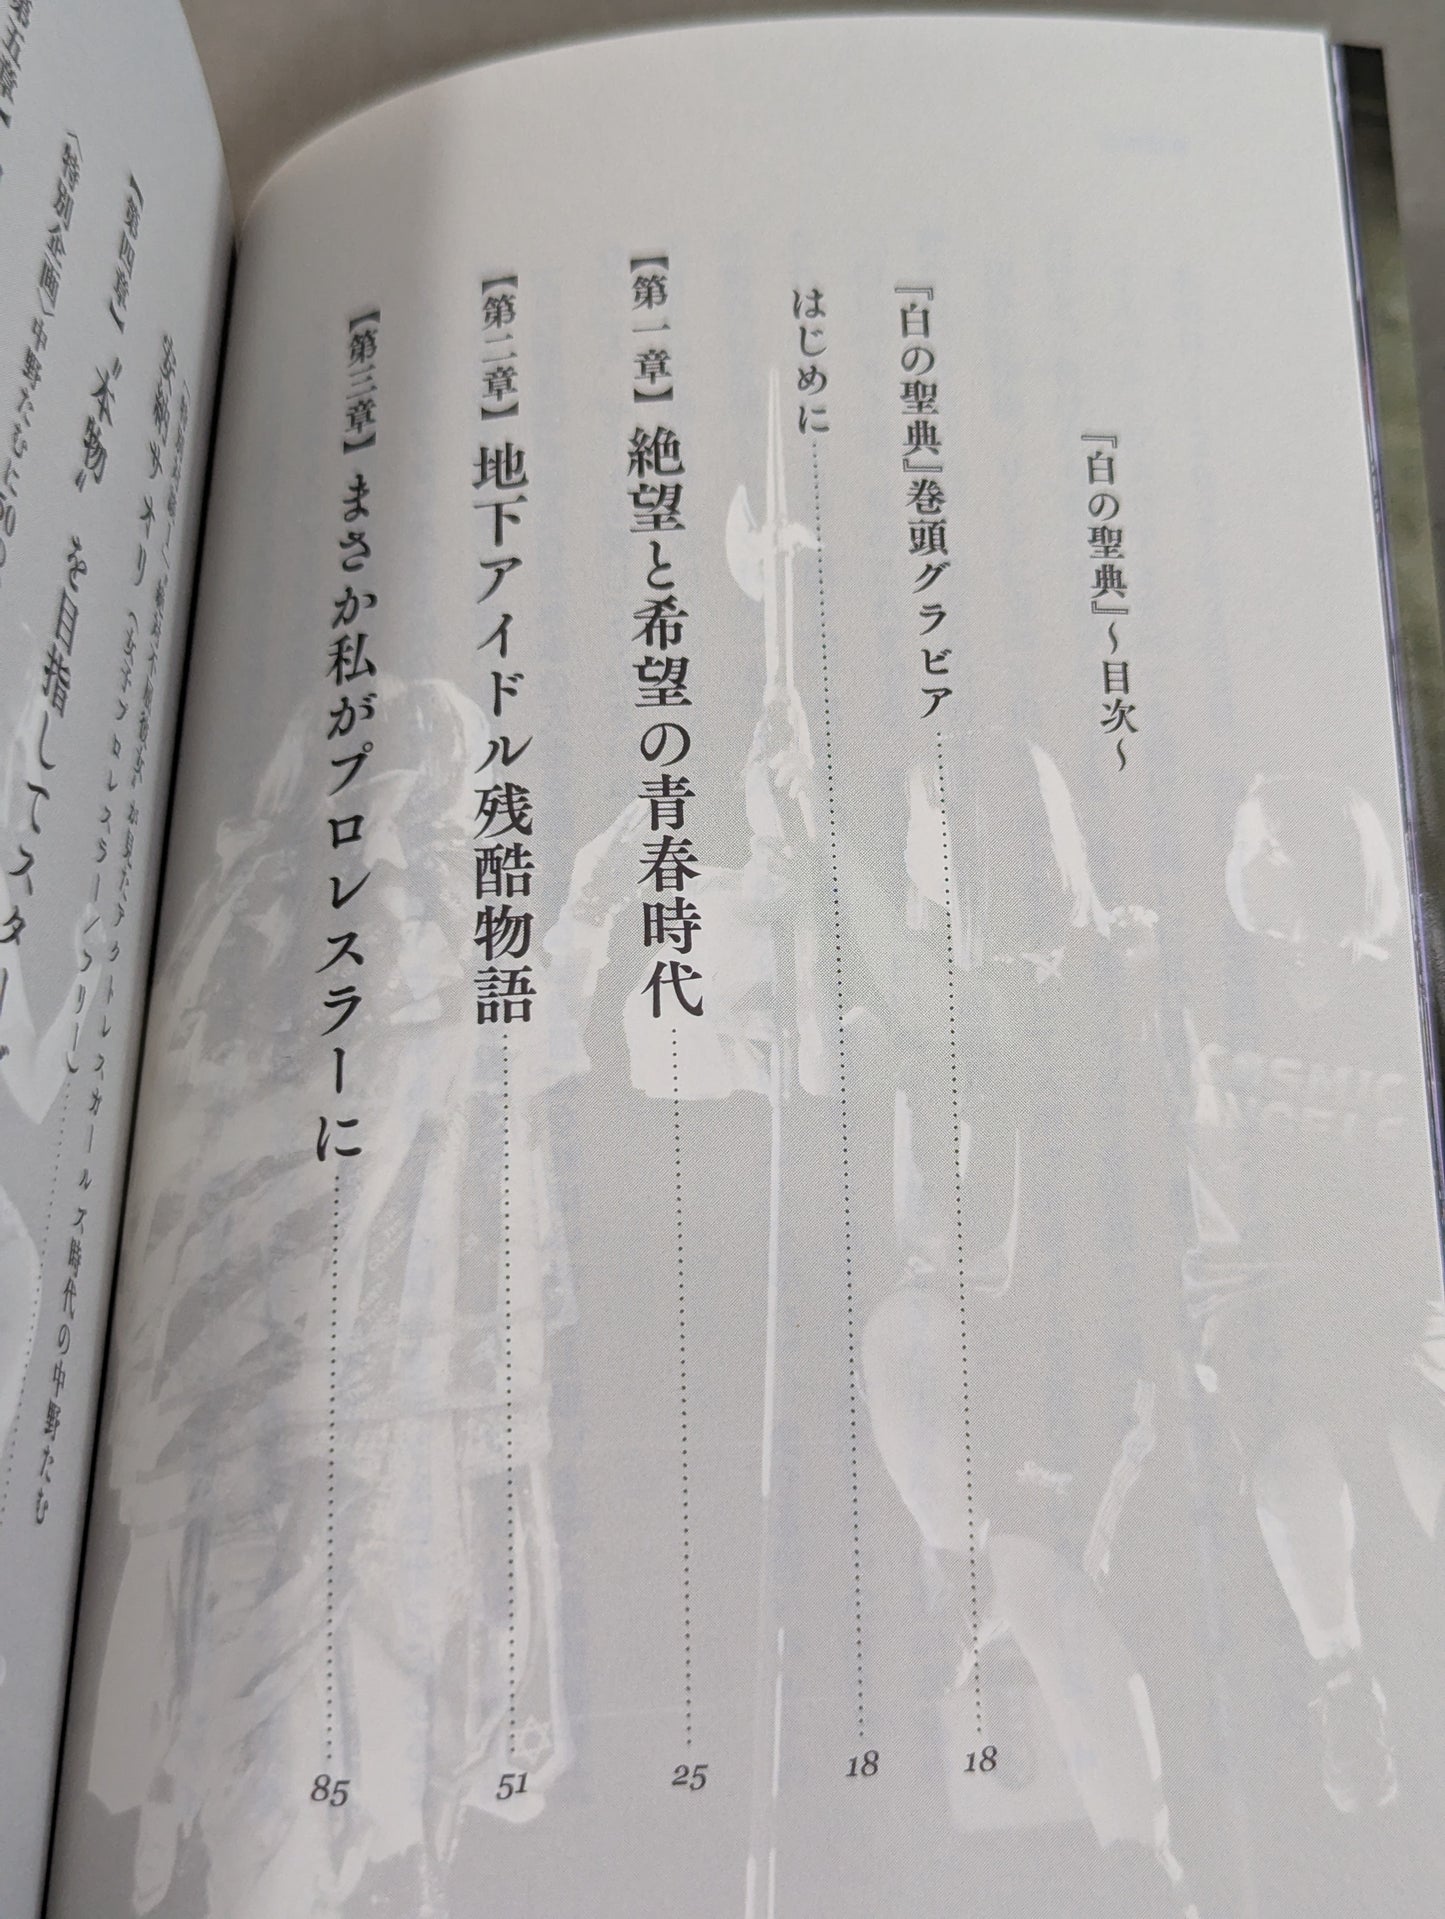 『白の聖典』～目次～
『白の聖典』巻頭グラビア 18
はじめに 18
【第一章】絶望と希望の青春時代 25
【第二章】地下アイドル残酷物語 51
【第三章】まさか私がプロレスラーに 85
安納サオリ（女子プロレスラー／フリー）
時代の中野たむ
【第四章】〝本物〟を目指してスターダ
（特別企画）中野たむに50の